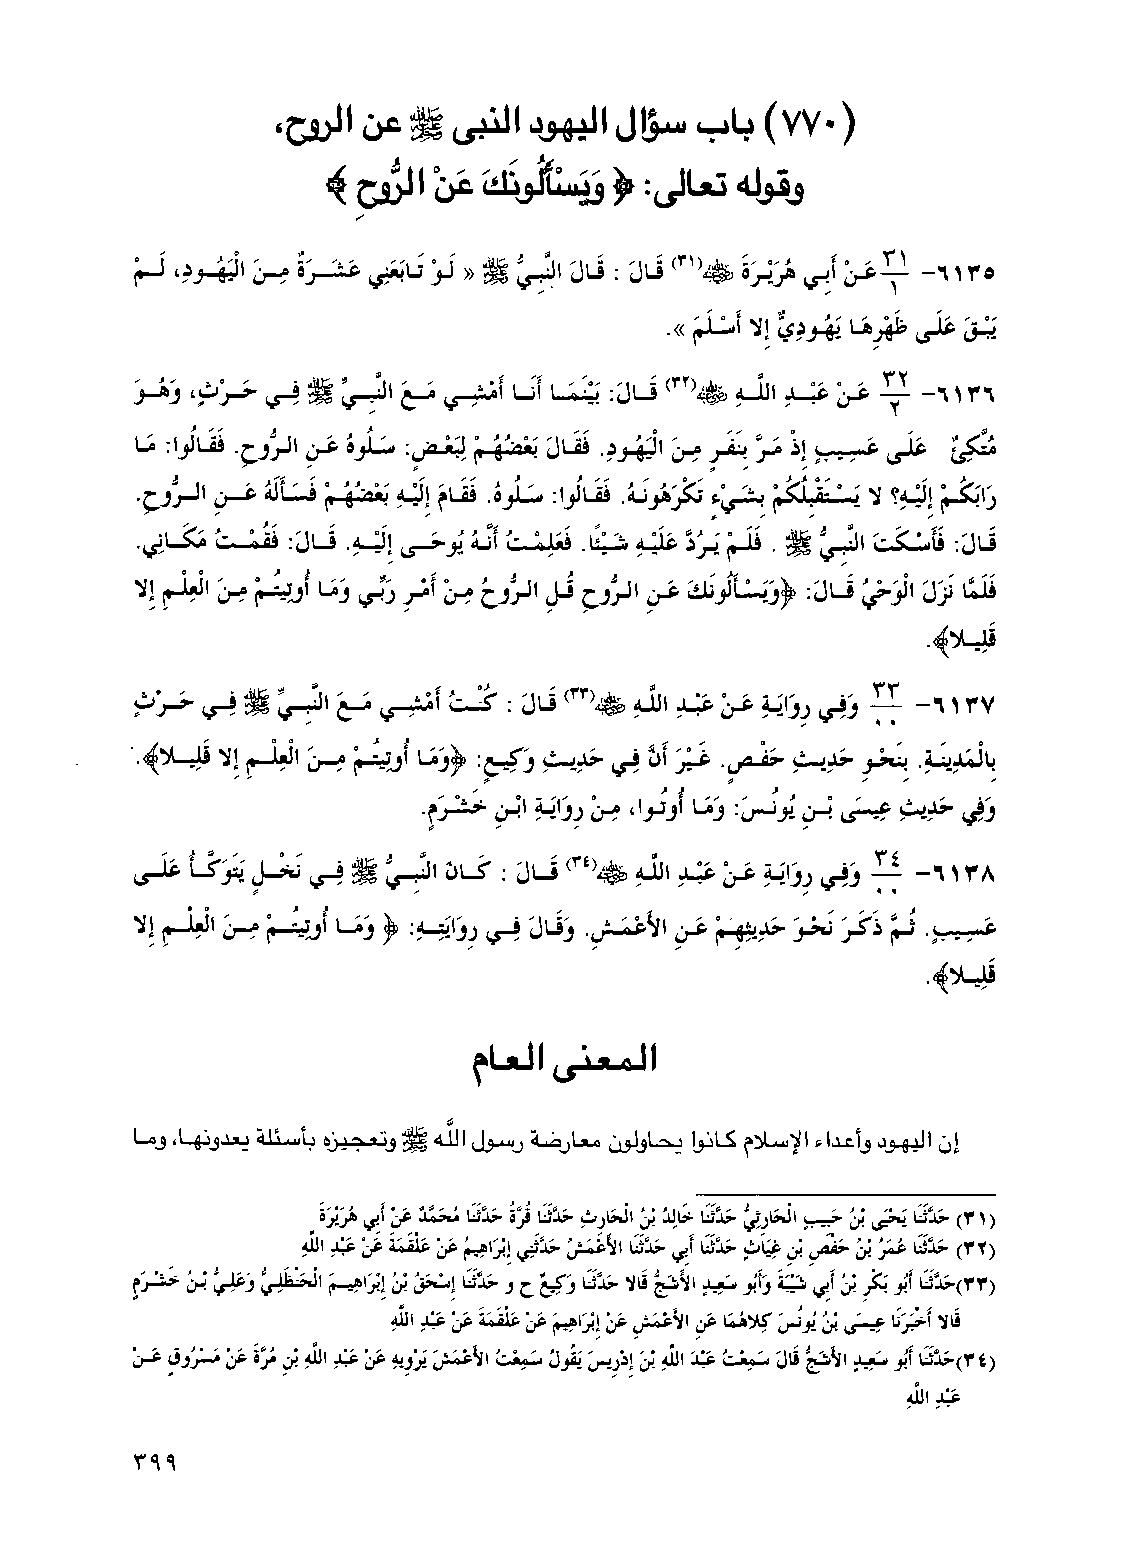 (٧٧٠) باب سؤال اليهود النبى ﷺ عن الروح،
وقوله تعالى: ﴿ وَيَسْأَلُونَكَ عَنْ الرُّوحِ ﴾
٦١٣٥- ٣١/١ عَنْ أَبِي هُرَيْرَةَ ﷺ(٣١) قَالَ : قَالَ النَّبِيُّ ﷺ « لَوْ تَابَعَنِي عَشَرَةٌ مِنَ الْيَهُودِ، لَمْ
يَبْقَ عَلَى ظَهْرِهَا يَهُودِيٌّ إِلا أَسْلَمَ ».
٦١٣٦- ٣٢/٢ عَنْ عَبْدِ اللَّهِ ﷺ(٣٢) قَالَ: بَيْنَمَا أَنَا أَمْشِي مَعَ النَّبِيِّ ﷺ فِي حَرْثٍ، وَهُوَ
مُتَّكِئٌ عَلَى عَسِيبٍ إِذْ مَرَّ بِنَفَرٍ مِنَ الْيَهُودِ. فَقَالَ بَعْضُهُمْ لِبَعْضٍ: سَلُوهُ عَنِ الرُّوحِ. فَقَالُوا: مَا
رَابَكُمْ إِلَيْهِ؟ لا يَسْتَقْبِلُكُمْ بِشَيْءٍ تَكْرَهُونَهُ. فَقَالُوا: سَلُوهُ. فَقَامَ إِلَيْهِ بَعْضُهُمْ فَسَأَلَهُ عَنِ الرُّوحِ.
قَالَ: فَأَسْكَتَ النَّبِيُّ ﷺ . فَلَمْ يَرُدَّ عَلَيْهِ شَيْئًا. فَعَلِمْتُ أَنَّهُ يُوحَى إِلَيْهِ. قَالَ: فَقُمْتُ مَكَانِي.
فَلَمَّا نَزَلَ الْوَحْيُ قَالَ: ﴿وَيَسْأَلُونَكَ عَنِ الرُّوحِ قُلِ الرُّوحُ مِنْ أَمْرِ رَبِّي وَمَا أُوتِيتُمْ مِنَ الْعِلْمِ إِلا
قَلِيلا﴾.
٦١٣٧- ٣٣/٠٠ وَفِي رِوَايَةٍ عَنْ عَبْدِ اللَّهِ ﷺ(٣٣) قَالَ : كُنْتُ أَمْشِي مَعَ النَّبِيِّ ﷺ فِي حَرْثٍ
بِالْمَدِينَةِ. بِنَحْوِ حَدِيثِ حَفْصٍ. غَيْرَ أَنَّ فِي حَدِيثِ وَكِيعٍ: ﴿وَمَا أُوتِيتُمْ مِنَ الْعِلْمِ إِلا قَلِيلا﴾.
وَفِي حَدِيثِ عِيسَى بْنِ يُونُسَ: وَمَا أُوتُوا، مِنْ رِوَايَةِ ابْنِ خَشْرَمٍ.
٦١٣٨- ٣٤/٠٠ وَفِي رِوَايَةٍ عَنْ عَبْدِ اللَّهِ ﷺ(٣٤) قَالَ : كَانَ النَّبِيُّ ﷺ فِي نَخْلٍ يَتَوَكَّأُ عَلَى
عَسِيبٍ. ثُمَّ ذَكَرَ نَحْوَ حَدِيثِهِمْ عَنِ الأَعْمَشِ. وَقَالَ فِي رِوَايَتِهِ: ﴿ وَمَا أُوتِيتُمْ مِنَ الْعِلْمِ إِلا
قَلِيلا﴾.
المعنى العام
إن اليهود وأعداء الإسلام كانوا يحاولون معارضة رسول اللَّه ﷺ وتعجيزه بأسئلة يعدونها، وما
(٣١) حَدَّثَنَا يَحْيَى بْنُ حَبِيبٍ الْحَارِثِيُّ حَدَّثَنَا خَالِدُ بْنُ الْحَارِثِ حَدَّثَنَا قُرَّةُ حَدَّثَنَا مُحَمَّدٌ عَنْ أَبِي هُرَيْرَةَ
(٣٢) حَدَّثَنَا عُمَرُ بْنُ حَفْصِ بْنِ غِيَاثٍ حَدَّثَنَا أَبِي حَدَّثَنَا الأَعْمَشُ حَدَّثَنِي إِبْرَاهِيمُ عَنْ عَلْقَمَةَ عَنْ عَبْدِ اللَّهِ
(٣٣)حَدَّثَنَا أَبُو بَكْرِ بْنُ أَبِي شَيْبَةَ وَأَبُو سَعِيدٍ الأَشَجُّ قَالا حَدَّثَنَا وَكِيعٌ ح و حَدَّثَنَا إِسْحَقُ بْنُ إِبْرَاهِيمَ الْحَنْظَلِيُّ وَعَلِيُّ بْنُ خَشْرَمٍ
قَالا أَخْبَرَنَا عِيسَى بْنُ يُونُسَ كِلاهُمَا عَنِ الأَعْمَشِ عَنْ إِبْرَاهِيمَ عَنْ عَلْقَمَةَ عَنْ عَبْدِ اللَّهِ
(٣٤)حَدَّثَنَا أَبُو سَعِيدٍ الأَشَجُّ قَالَ سَمِعْتُ عَبْدَ اللَّهِ بْنَ إِدْرِيسَ يَقُولُ سَمِعْتُ الأَعْمَشَ يَرْوِيهِ عَنْ عَبْدِ اللَّهِ بْنِ مُرَّةَ عَنْ مَسْرُوقٍ عَنْ
عَبْدِ اللَّهِ
٣٩٩